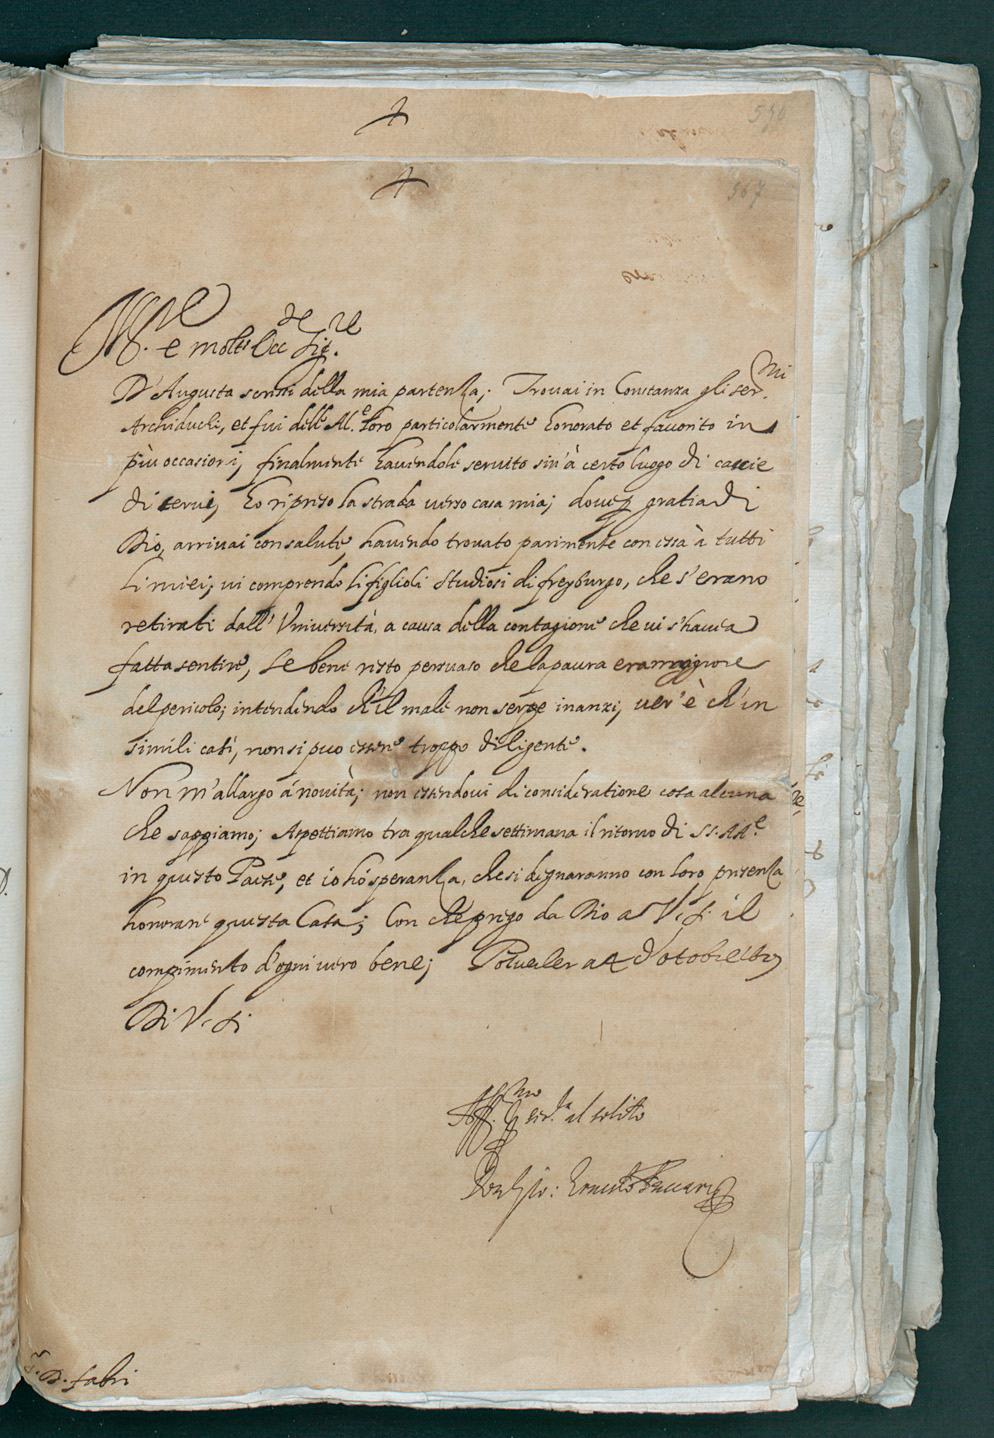 567
Ill.re e molt'Ecc.te Sig.re
D'Augusta scrissi della mia partenza; Trovai in Constanza gli ser.mi
Archiduchi, et fui dell'Al.e loro particolarmente honorato et favorito in
più occasioni, finalmente havendole servito sin'à certo luogo di caccie
di cervi, ho ripreso la strada verso casa mia; dove p gratia di
Dio, arrivai con salute, havendo trovato parimente con essa à tutti
li miei; vi comprendo li figlioli studiosi di freyburgo, che s'erano
retirati dall'Università, a causa della contagione che vi s'haveva
fatta sentire, se bene resto persuaso che la paura era maggiore
del pericolo; intendendo ch'il male non serpe inanzi, ver'è ch'in
simili casi, non si può essere troppo diligente.
Non m'allargo á novità; non essendovi di consideratione cosa alcuna
che sappiamo; Aspettiamo tra qualche settimana il ritorno di SS. AA.e
in questo Paese, et io hò speranza, che si degnaranno con loro presenza
honorare questa Casa; Con che prego da Dio a V. S. il
compimento d'ogni vero bene; a 4 d'ottobre
Di V. S.
Aff.mo ser.re al solito
S.r D. fabri